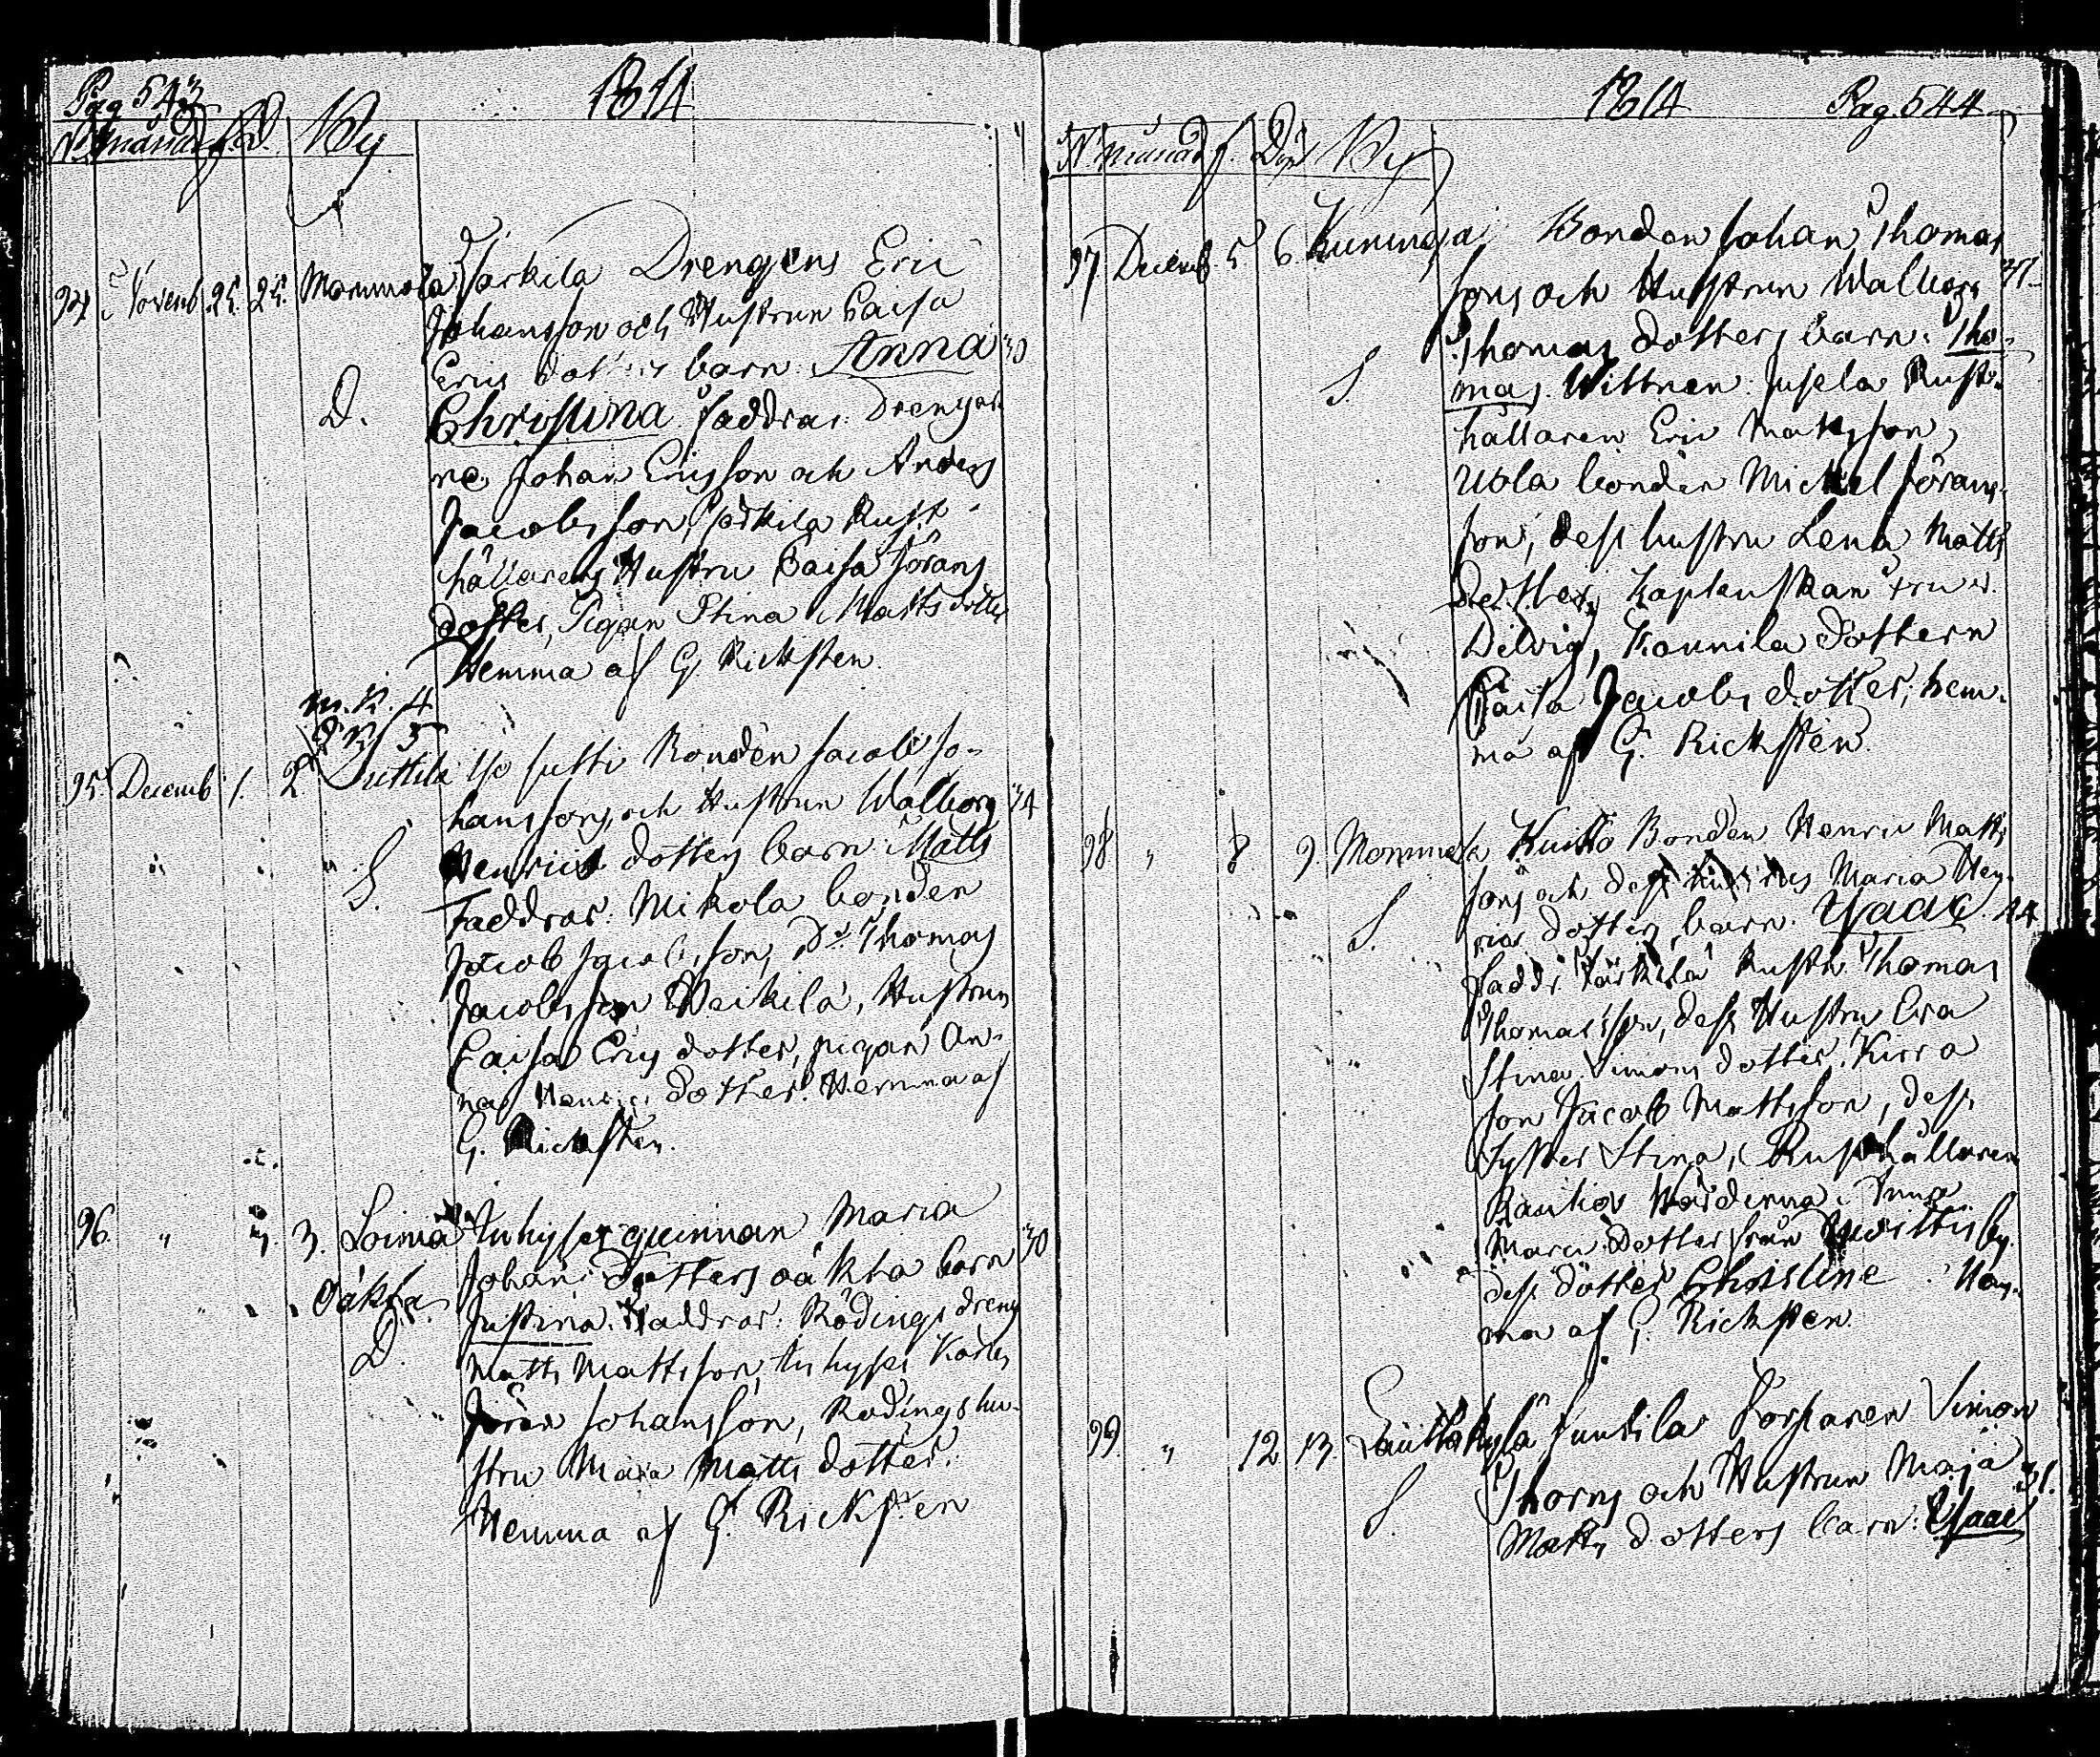 Pag 543
1814
N. månad f. D. By
94 Novemb. 25. 25. Mommola Sarkila Drengens Eric
Johansson och Hustrun Caisa
Erics dotters barn: Anna 30
D.
Christina. Faddrar: Drengar-
ne Johan Ericsson och Anders
Jacobsson, Sarkila Rust-
hållarens Hustru Caisa Jörans
dotter, Pigan Stina Matts dotter
Hemma af G. Ricksten.
95. Decemb 1. 2 Suttila Iso Jutti Bonden Jacob Jo-
hanssons, och Hustrun Walborg 34
Henrics dotters barn: Matts
S.
Faddrar: Mikola bonden
Jacob Jacobsson, Do Thomas
Jacobsson Heikilä, Hustrun
Caisa Erics dotter, pigan An-
na Henrics dotter. Hemma af
G. Ricksten.
96. " 3. Loima qwinnan Maria
Johans dotters oäkta barn 30
oäkta
Justina. Faddrar: Rödings dreng
D.
Matts Mattsson, Karln
Jöran Johansson, Rödings hu-
stru Maria Matts dotter.
Hemma af G. Ricksten
1814 Pag. 544
N. månad f. Döpt By
97 Decemb 5 6 Kuninga Bonden Johan Thomas
sons och Hustrun Walborg 37.
Thomas dotters barn: Tho-
S.
mas. Wittnen: Jusela Rust-
hållaren Eric Mattsson,
Uola bonden Mickel Jörans-
son, dess hustru Lena Matts
dotter, Kaplanskan Fru
Delvig, Kaunila dottern
Caisa Jacobs dotter, hem-
ma af G. Ricksten.
98 " 8 9. Mommola Kuitto Bonden Henric Matts
sons och dess Hustrus Maria Hen-
rics dotters barn. Isaac. 44
S.
Fadd: Särkilä Rusth. Thomas
Thomasson, dess Hustru Eva
Stina Simons dotter, Kirra
son Jacob Mattsson, dess
Syster Stina, Rusthållaren
Rautios Värdinna Anna
Maria dotter från by.
dess dotter Christine. Hem-
ma af G. Ricksten
99 " 12 13. Lauttakylä Junnila Torparen Simon
Thoms och Hustrun Maja 31.
S.
Matts dotters barn: Isaac